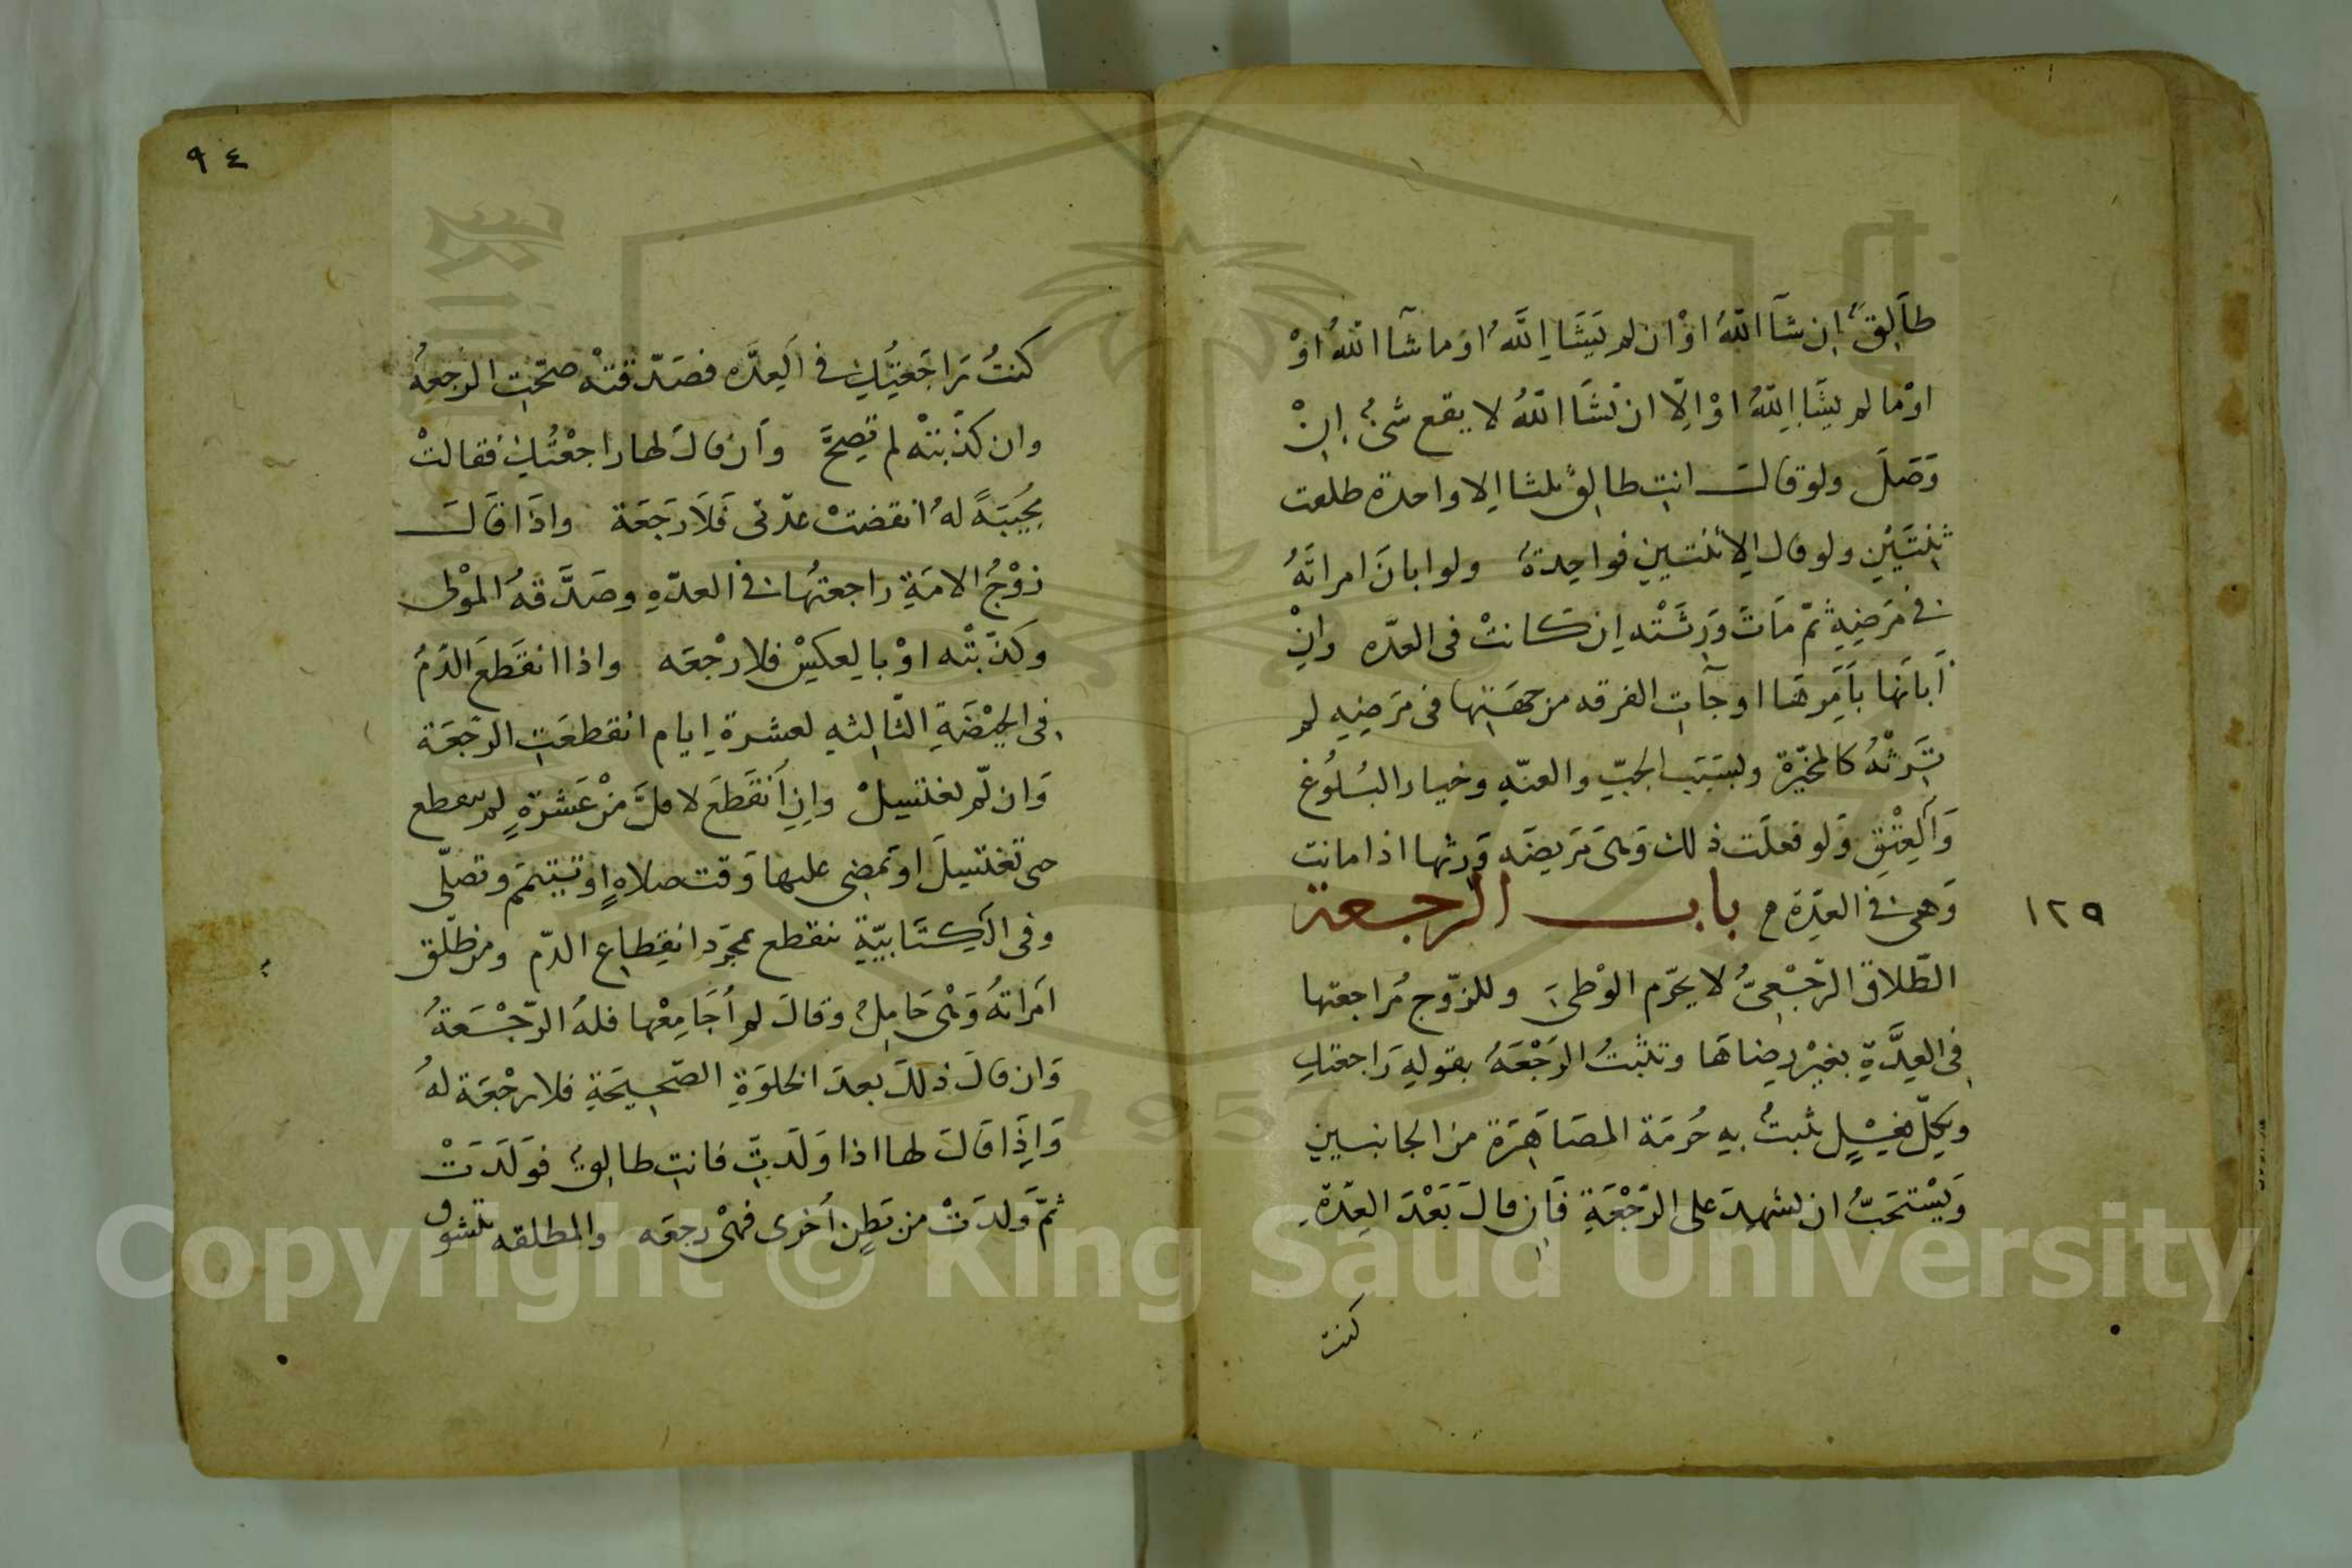 طَالِقٌ اِن شآ اللّهُ اوْ ان لم يَشَاِ اللّهُ او ما شآ اللّهُ اوْ
اوْ ما لم يشَاِ اللّهُ اوْ اِلّا ان يَشَآ اللّهُ لا يقع شىءٌ اِنْ
وَصَلَ ولو قال انتِ طالِقٌ ثلثا اِلا واحدة طلقت
ثِنتَيْنِ ولو قال اِلا ثنتين فواحِدةٌ ولو ابانَ امراتَهُ
فى مَرَضِهِ ثمّ مَاتَ وَرِثَتْه اِن كانتْ فى العدّه وانْ
اَبانَها بِاَمْرِهَا او جآت الفرقه من جهَتِها فى مَرَضِهِ لم
تَرِثْهُ كالمخيّرة وبسَبَبِ الجبّ والعنّهِ وخيار البُلُوغِ
وَالعِتْقِ وَلو فعلَت ذلك وَهى مَريضَه وَرِثها اذا ماتت
وَهى فى العِدّة م باب الرجعة
١٢٩
الطّلاق الرّجْعىُّ لا يحرّم الوْطىَ وللزّوج مُراجعتها
فى العِدَّةِ بغيْر رِضاهَا وتثبتُ الرَجْعَهُ بقولهِ رَاجعتكِ
وبكلّ فِعْلٍ يثبتُ بِهِ حُرمَة المصَاهَرَة من الجانبين
وَيسْتحَبُّ ان يشهِدَ على الرّجْعَةِ فَاِن قالَ بَعْدَ العِدّةِ
كنت
٩٤
كنتُ رَاجَعْتُكِ فى العِدَّه فصَدّقتْه صحّت الرجعهُ
وان كذّبتْه لم تصِحَّ وَان قال لها راجعْتُكِ فقالتْ
مُجِيبَةً لهُ انقضتْ عدّتى فَلَا رَجَعَة واذَا قَالَ
زوْجُ الامَةِ راجعتُها فى العدّهِ وصَدَّقهُ الموْلى
وكذّبتْه اوْ بالعكسْ فلا رجْعَه واذا انقَطعَ الدَمُ
فى الحيْضَةِ الثّالثهِ لعشرة ايام انقطعَتِ الرجّعَة
وَان لّم تغتسِلْ واِنِ انقَطعَ لاقلَّ مِنْ عَشرَةٍ لم تنقطع
حتى تغتسِلَ او تمضى عليها وَقت صلاةٍ او تتيمّم وتصلّى
وفى الكِتَابيّةِ تنقطع بمجرّد انقِطاعِ الدّم ومن طلّق
امرَاتهُ وَهْى حَامِلٌ وقالَ لم اُجَامِعْها فلهُ الرّجْعَةُ
وَان قالَ ذلكَ بعدَ الخلوَةِ الصّحِيحَةِ فلا رجْعَة لهُ
وَاِذَا قَالَ لها اذا وَلَدتِ فانتِ طالِقٌ فوَلَدَتْ
ثمّ وَلدَتْ من بَطنٍ اُخرى فهْى رجعَه والمطلقه تتشوف
Copyright © King Saud University
1957